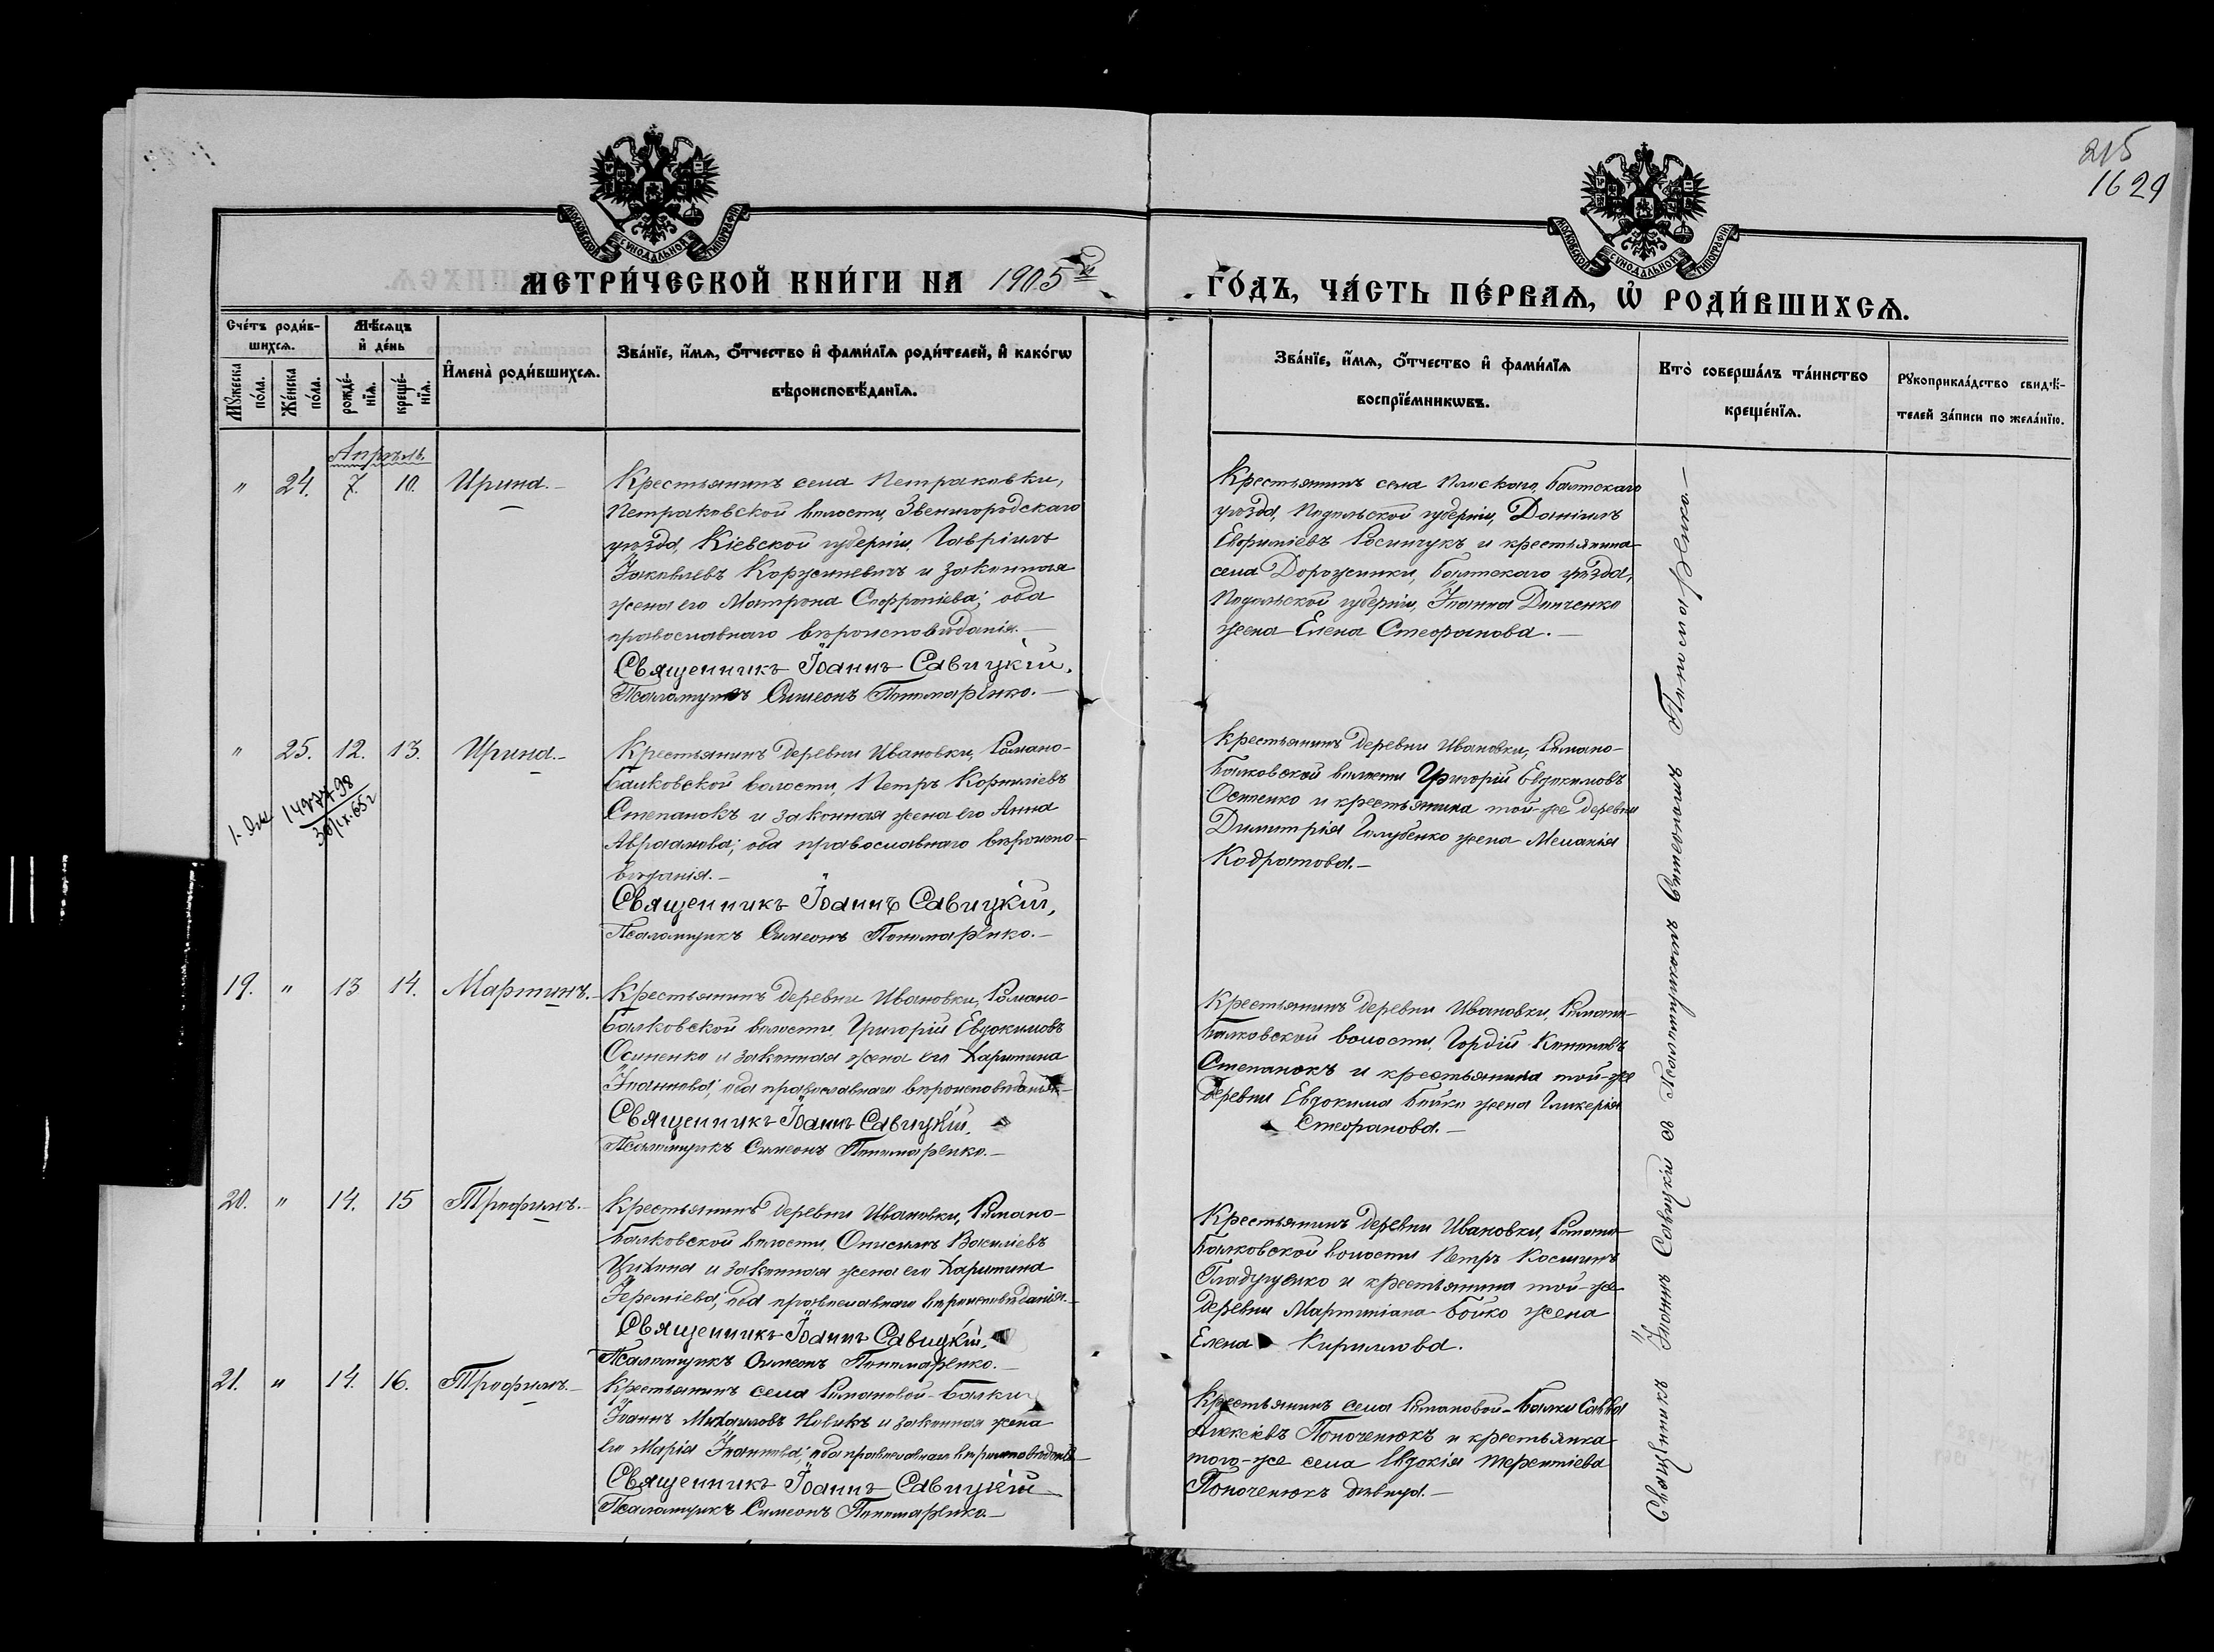 215
1629
МОСКОВСКОЙ СѴНОДАЛЬНОЙ ТИПОГРАФІИ
МОСКОВСКОЙ СѴНОДАЛЬНОЙ ТИПОГРАФІИ
МЕТРИ́ЧЕСКОЙ КНИ́ГИ НА 1905й
ГО́ДЪ, ЧА́СТЬ ПЕ́РВАѦ, Ѽ РОДИ́ВШИХСѦ.
Сче́тъ роди́в-
шихсѧ.
Мꙋ́жеска
по́ла.
Же́нска
по́ла.
Мѣ́сѧцъ
и҆ де́нь
рожде́-
нїѧ.
креще́-
нїѧ.
И҆мена̀ роди́вшихсѧ.
Зва́нїе, и҆́мѧ, ѻ҆́тчество и҆ фами́лїѧ роди́телей, и҆ како́гѡ
вѣроисповѣ́данїѧ.
Зва́нїе, и҆́мѧ, ѻ҆́тчество и҆ фами́лїѧ
воспрїе́мникѡвъ.
Кто̀ соверша́лъ та́инство
креще́нїѧ.
Рꙋкоприкла́дство свидѣ́-
телей за́писи по жела́нїю.
Апрѣль.
" 24. 7. 10. Ирина.-
Крестьянинъ села Петраковки,
Петраковской волости, Звенигородскаго
уѣзда, Кіевской губерніи, Гавріилъ
Іаковлевъ и законная
жена его Матрона Софроніева; оба
православнаго вѣроисповѣданія.-
Священникъ Іоаннъ Савицкій.
Псаломщикъ Симеонъ Пономаренко.-
Крестьянинъ села Плоскаго, Балтскаго
уѣзда, Подольской губерніи, Даніилъ
Евфиміевъ и крестьянина
села Дорожинки, Балтскаго уѣзда,
Подольской губерніи, Іоанна Донченко
жена Елена Стефанова.-
" 25. 12. 13. Ирина.-
149 98
30/IX.65г
Крестьянинъ деревни Ивановки, Романо-
Балковской волости, Петръ Корниліевъ
Степанокъ и законная жена его Анна
Авраамова; оба православнаго вѣроиспо-
вѣданія.-
Священникъ Іоаннъ Савицкій,
Псаломщикъ Симеонъ Пономаренко.-
Крестьянинъ деревни Ивановки, Романо-
Балковской волости Григорій Евдокимовъ
Осипенко и крестьянина той-же деревни
Димитрія Голубенко жена Меланія
Кодратова.-
19. " 13 14. Мартинъ.-
Крестьянинъ деревни Ивановки, Романо-
Балковской волости, Григорій Евдокимовъ
Осипенко и законная жена его Харитина
Іоаннова; оба православнаго вѣроисповѣданія.-
Священникъ Іоаннъ Савицкій.
Псаломщикъ Симеонъ Пономаренко.-
Крестьянинъ деревни Ивановки, Романо-
Балковской волости, Гордій Кононовъ
Степанокъ и крестьянина той-же
деревни Евдокима Бойко жена Гликерія
Стефанова.-
20. " 14. 15 Трофимъ.-
Крестьянинъ деревни Ивановки, Романо-
Балковской волости, Онисимъ Василіевъ
и законная жена его Харитина
Іереміева; оба православнаго вѣроисповѣданія.-
Священникъ Іоаннъ Савицкій.
Псаломщикъ Симеонъ Пономаренко.-
Крестьянинъ деревни Ивановки, Романо-
Балковской волости Петръ Косминъ
и крестьянина той-же
деревни Мартиніана Бойко жена
Елена Кириллова.
21. " 14. 16. Трофимъ.-
Крестьянинъ села Романовой-Балки
Іоаннъ Михаиловъ Новикъ и законная жена
его Марія Іоаннова; оба православнаго вѣроисповѣданія
Священникъ Іоаннъ Савицкій
Псаломщикъ Симеонъ Пономаренко.-
Крестьянинъ села Романовой-Балки Савва
Алексіевъ Попоченюкъ и крестьянка
того-же села Евдокія Терентіева
Попоченюкъ дѣвица.-
Священникъ Іоаннъ Савицкій съ Псаломщикомъ Симеономъ Пономаренко.-